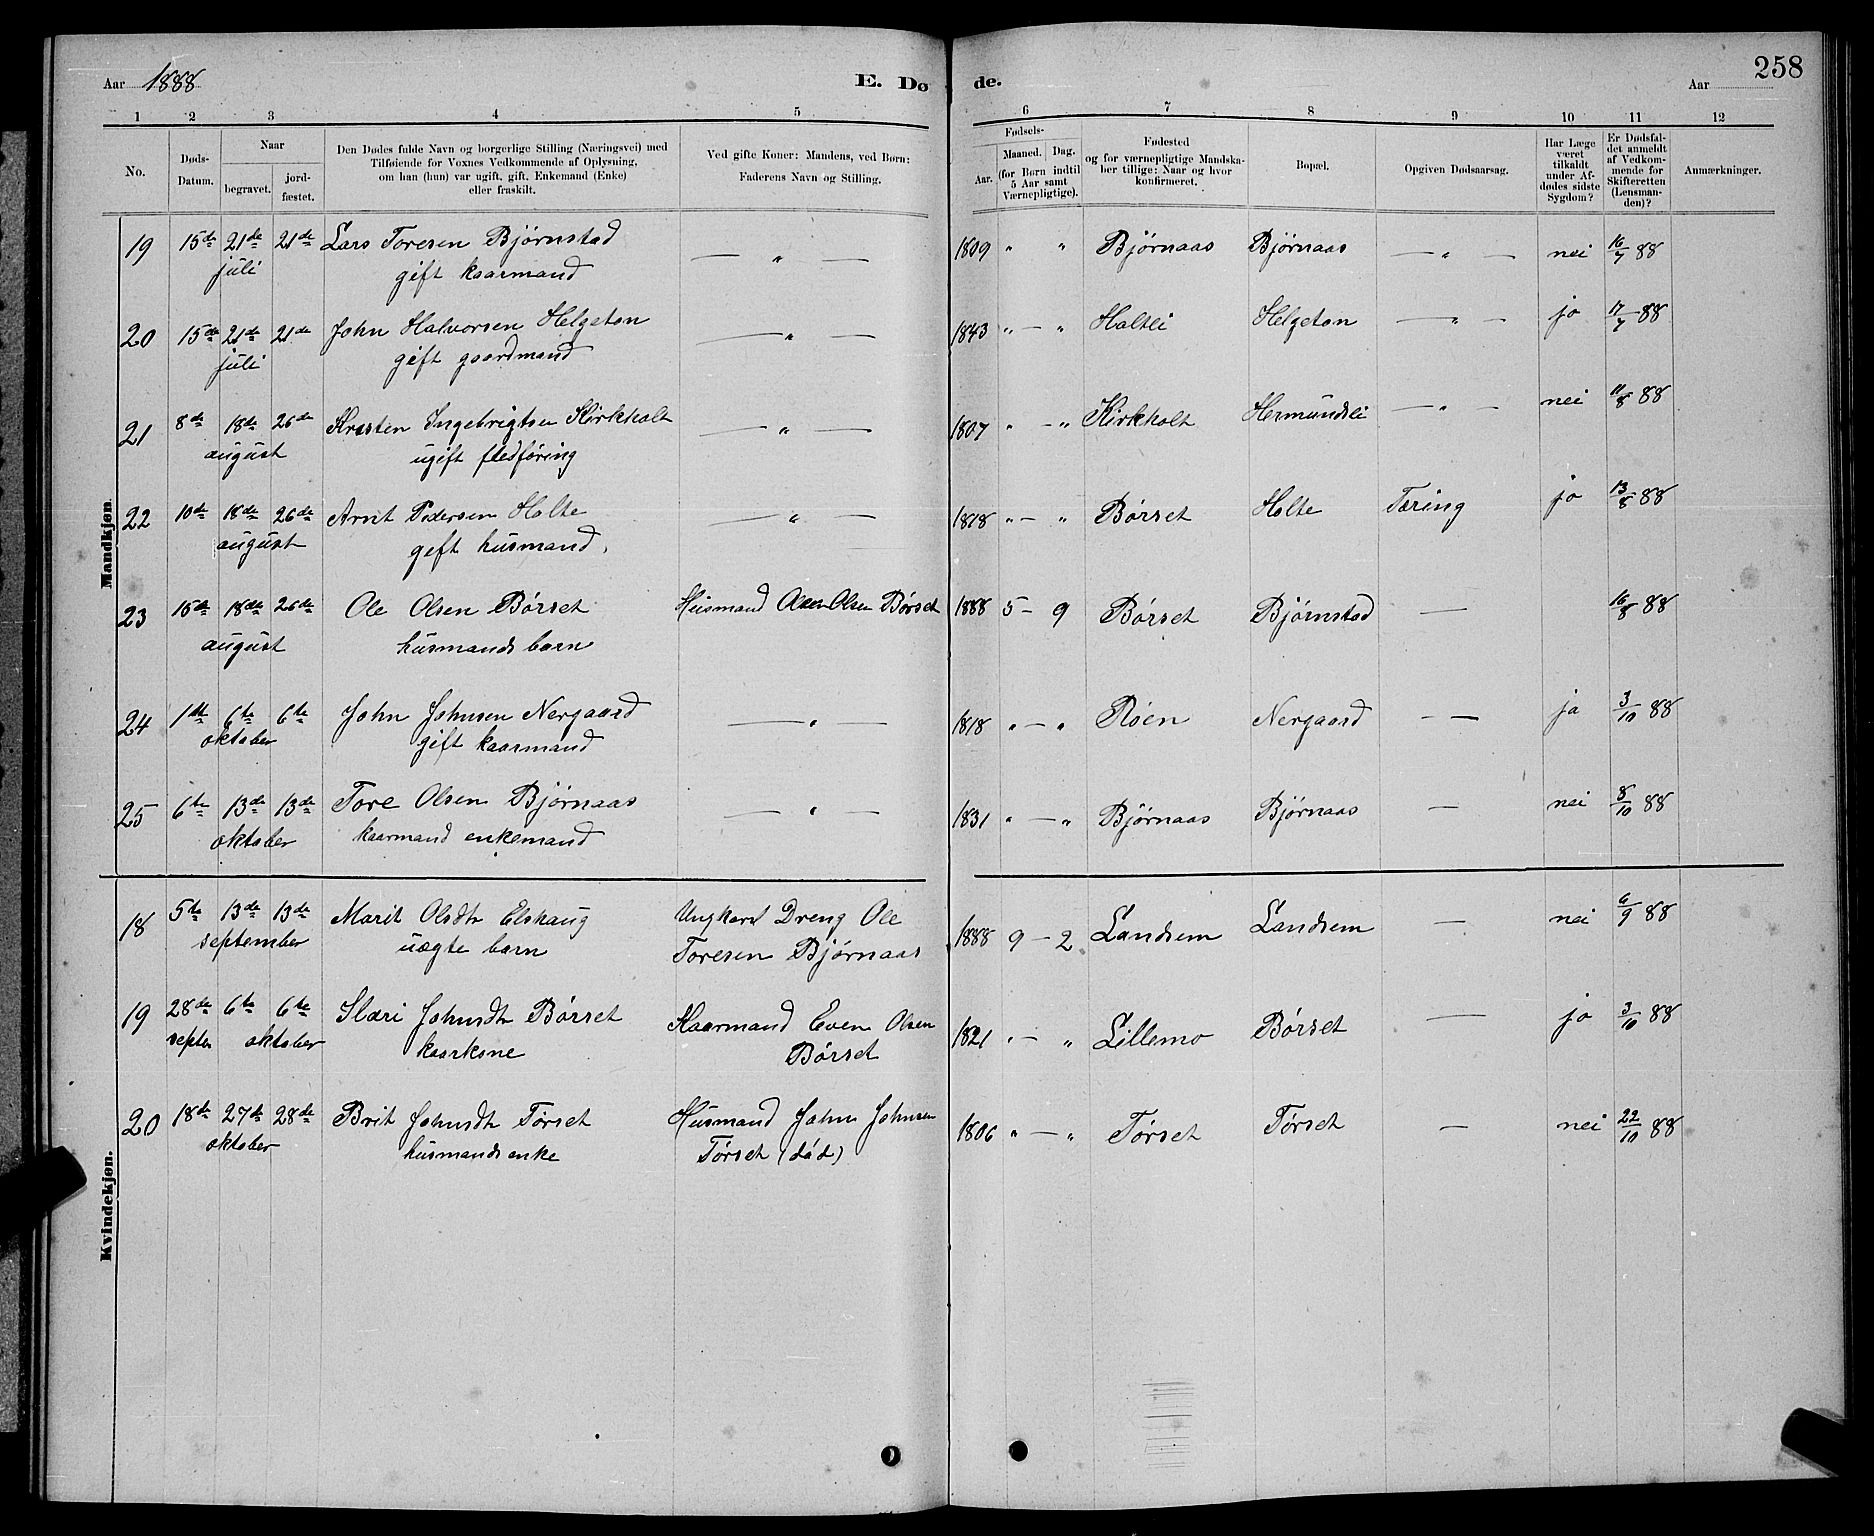 Aar 1888 E. Dø de. Aar 258
1 2 3 4 5 6 7 8 9 10 11 12
No. Døds-Datum. Naar begravet. jordfæstet. Den Dødes fulde Navn og borgerlige Stilling (Næringsvei) med Tilføiende for Voxnes Vedkommende af Oplysning, om han (hun) var ugift, gift, Enkemand (Enke) eller fraskilt. Ved gifte Koner: Mandens, ved Børn: Faderens Navn og Stilling. Fødsels- Aar. Maaned. Dag. (for Børn indtil 5 Aar samt Værnepligtige). Fødested og for værnepligtige Mandskaber tillige: Naar og hvor konfirmeret. Bopæl. Opgiven Dødsaarsag. Har Læge været tilkaldt under Afdødes sidste Sygdom? Er Dødsfaldet anmeldt af Vedkommende for Skifteretten (Lensmanden)? Anmærkninger.
Mandkjøn.
19 15de 21de 21de Lars Toresen Bjørnstad — " — 1809 " " Bjørnaas Bjørnaas — " — nei 16/7 88
juli gift kaarmand
20 15de 21de 21de John Halvorsen Helgeton — " — 1843 " — " Haltli Helgeton — " — ja 17/7 88
juli gift gaardmand
21 8de 18de 26de Kristen Ingebrigtsen Kirkholt — " — 1807 " — " Kirkholt Hermundsli — " — nei 11/8 88
august ugift fledføring
22 10de 18de 26de Arnt Pedersen Holte — " — 1818 " — " Børset Holte Tæring ja 13/8 88
august gift husmand.
23 15de 18de 26de Ole Olsen Børset Husmand Olsen Børset 1888 5 — 9 Børset Bjørnstad — 16/8 88
august husmands barn
24 1ste 6te 6te John Johnsen Nergaard — " — 1818 " — " Røen Nergaard — ja 3/10 88
oktober gift kaarmand
25 6te 13de 13de Tore Olsen Bjørnaas — " — 1831 " — " Bjørnaas Bjørnaas — nei 8/10 88
oktober kaarmand enkemand
Kvindekjøn.
18 5te 13de 13de Marit Olsdtr Elshaug Ungkarl Dreng Ole 1888 9 — 2 Landsem Landsem — nei 6/9 88
september uægte barn Toresen Bjørnaas
19 28de 6te 6te Johnsdtr Børset Kaarmand Even Olsen 1821 " — " Lillemo Børset — ja 3/10 88
septer oktober kaarkone Børset
20 18de 27de 28de Brit Johnsdtr Tørset Husmand John Johnsen 1806 " — " Tørset Tørset — nei 22/10 88
oktober husmands enke Tørset (død)